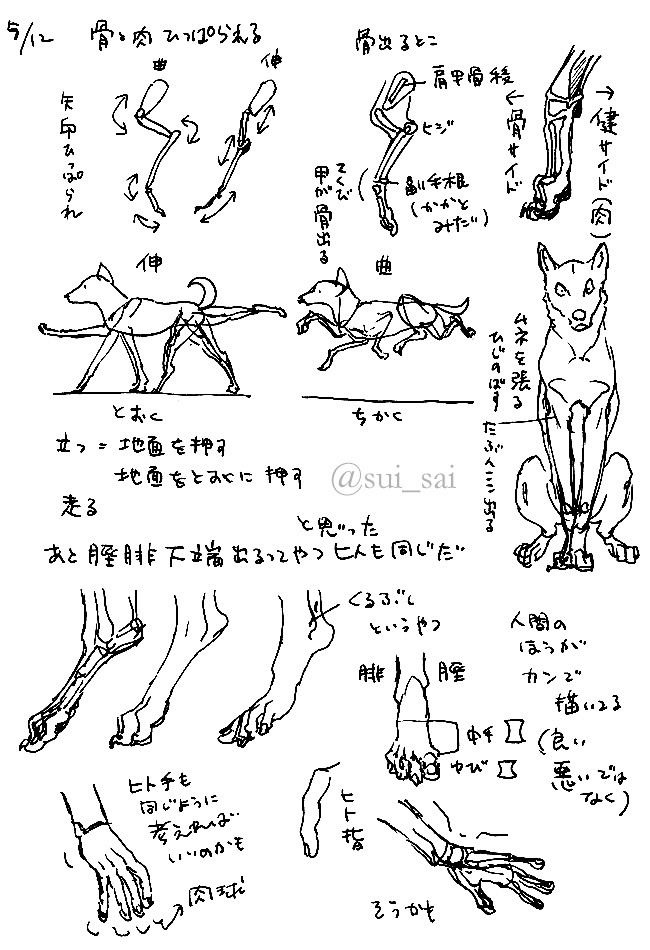 5/12 骨と肉 ひっぱられる
曲
伸
矢印ひっぱられ
骨出るとこ
肩甲骨稜
ヒジ
副手根
(かかと
みたい)
てくび
甲が骨出る
←骨サイド
→腱サイド(肉)
伸
曲
とおく
ちかく
立つ=地面を押す
地面をとおくに押す
走る
ムネを張る
ひじのばす
たぶんここ出る
@sui_sai
と思った
あと脛腓下端出るってやつヒトも同じだ
くるぶし
というやつ
腓 脛
中手
ゆび
人間の
ほうが
カンで
描いてる
(良い
悪いでは
なく)
ヒト手も
同じように
考えれば
いいのかも
肉球
ヒト指
そうかも